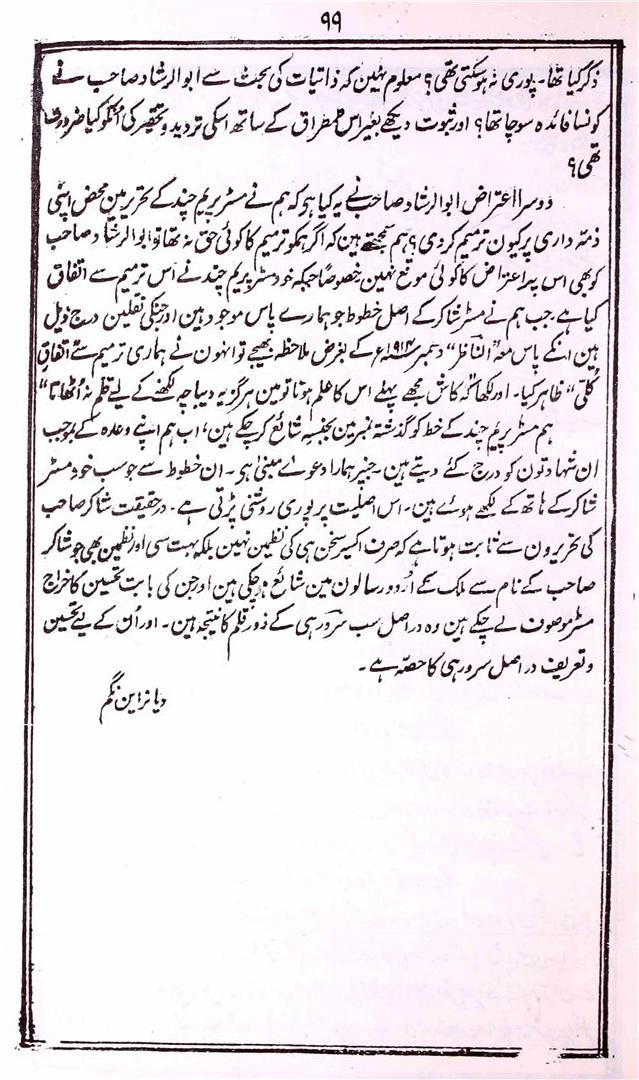 ۹۹
ذکر کیا تھا۔ پوری نہ ہوسکتی تھی؟ معلوم نہین کہ ذاتیات کی بحث سے ابوالرشاد صاحب نے
کونسا فائدہ سوچا تھا؟ اور ثبوت دیکھے بغیر اس طمطراق کے ساتھ اسکی تردید و تحقیر کی اُنکو کیا ضرورت
تھی؟
دوسرا اعتراض ابوالرشاد صاحب نے یہ کیا ہی کہ ہم نے مسٹر پریم چند کے تحریر مین محض اپنی
ذمہ داری پر کیون ترمیم کردی؟ ہم سمجھتے ہین کہ اگر ہمکو ترمیم کا کوئی حق نہ تھا تو ابوالرشاد صاحب
کو بھی اس پر اعتراض کا کوئی موقع نہین خصوصاً جبکہ خود مسٹر پریم چند نے اس ترمیم سے اتفاق
کیا ہے جب ہم نے مسٹر شاکر کے اصل خطوط جو ہمارے پاس موجود ہین اور جنکی نقلین درج ذیل
ہین انکے پاس معہ "الناظر" دسمبر ۱۹۱۴ء کے بغرض ملاحظہ بھیجے تو انہون نے ہماری ترمیم سے "اتفاق
کلی" ظاہر کیا۔ اور لکھا "کہ کاش مجھے پہلے اس کا علم ہوتا تو مین ہرگز یہ دیباچہ لکھنے کے لیے قلم نہ اُٹھاتا"
ہم مسٹر پریم چند کے خط کو گذشتہ نمبر مین بجنسہ شائع کرچکے ہین، اب ہم اپنے وعدہ کے بموجب
ان شہادتون کو درج کئے دیتے ہین۔ جنپر ہمارا دعوے مبنی ہی۔ ان خطوط سے جو سب خود مسٹر
شاکر کے ہاتھ کے لکھے ہوئے ہین۔ اس اصلیت پر پوری روشنی پڑتی ہے۔ درحقیقت شاکر صاحب
کی تحریرون سے ثابت ہوتا ہے کہ صرف اکسیر سخن ہی کی نظمین نہین بلکہ بہت سی اور نظمین بھی جو شاکر
صاحب کے نام سے ملک کے اُردو رسالون مین شائع ہوچکی ہین اور جن کی بابت تحسین کا خراج
مسٹر موصوف لے چکے ہین وہ دراصل سب سرور ہی کے زور قلم کا نتیجہ ہین۔ اور اُن کے لیے تحسین
و تعریف در اصل سرور ہی کا حصہ ہے۔
دیا نراین نگم